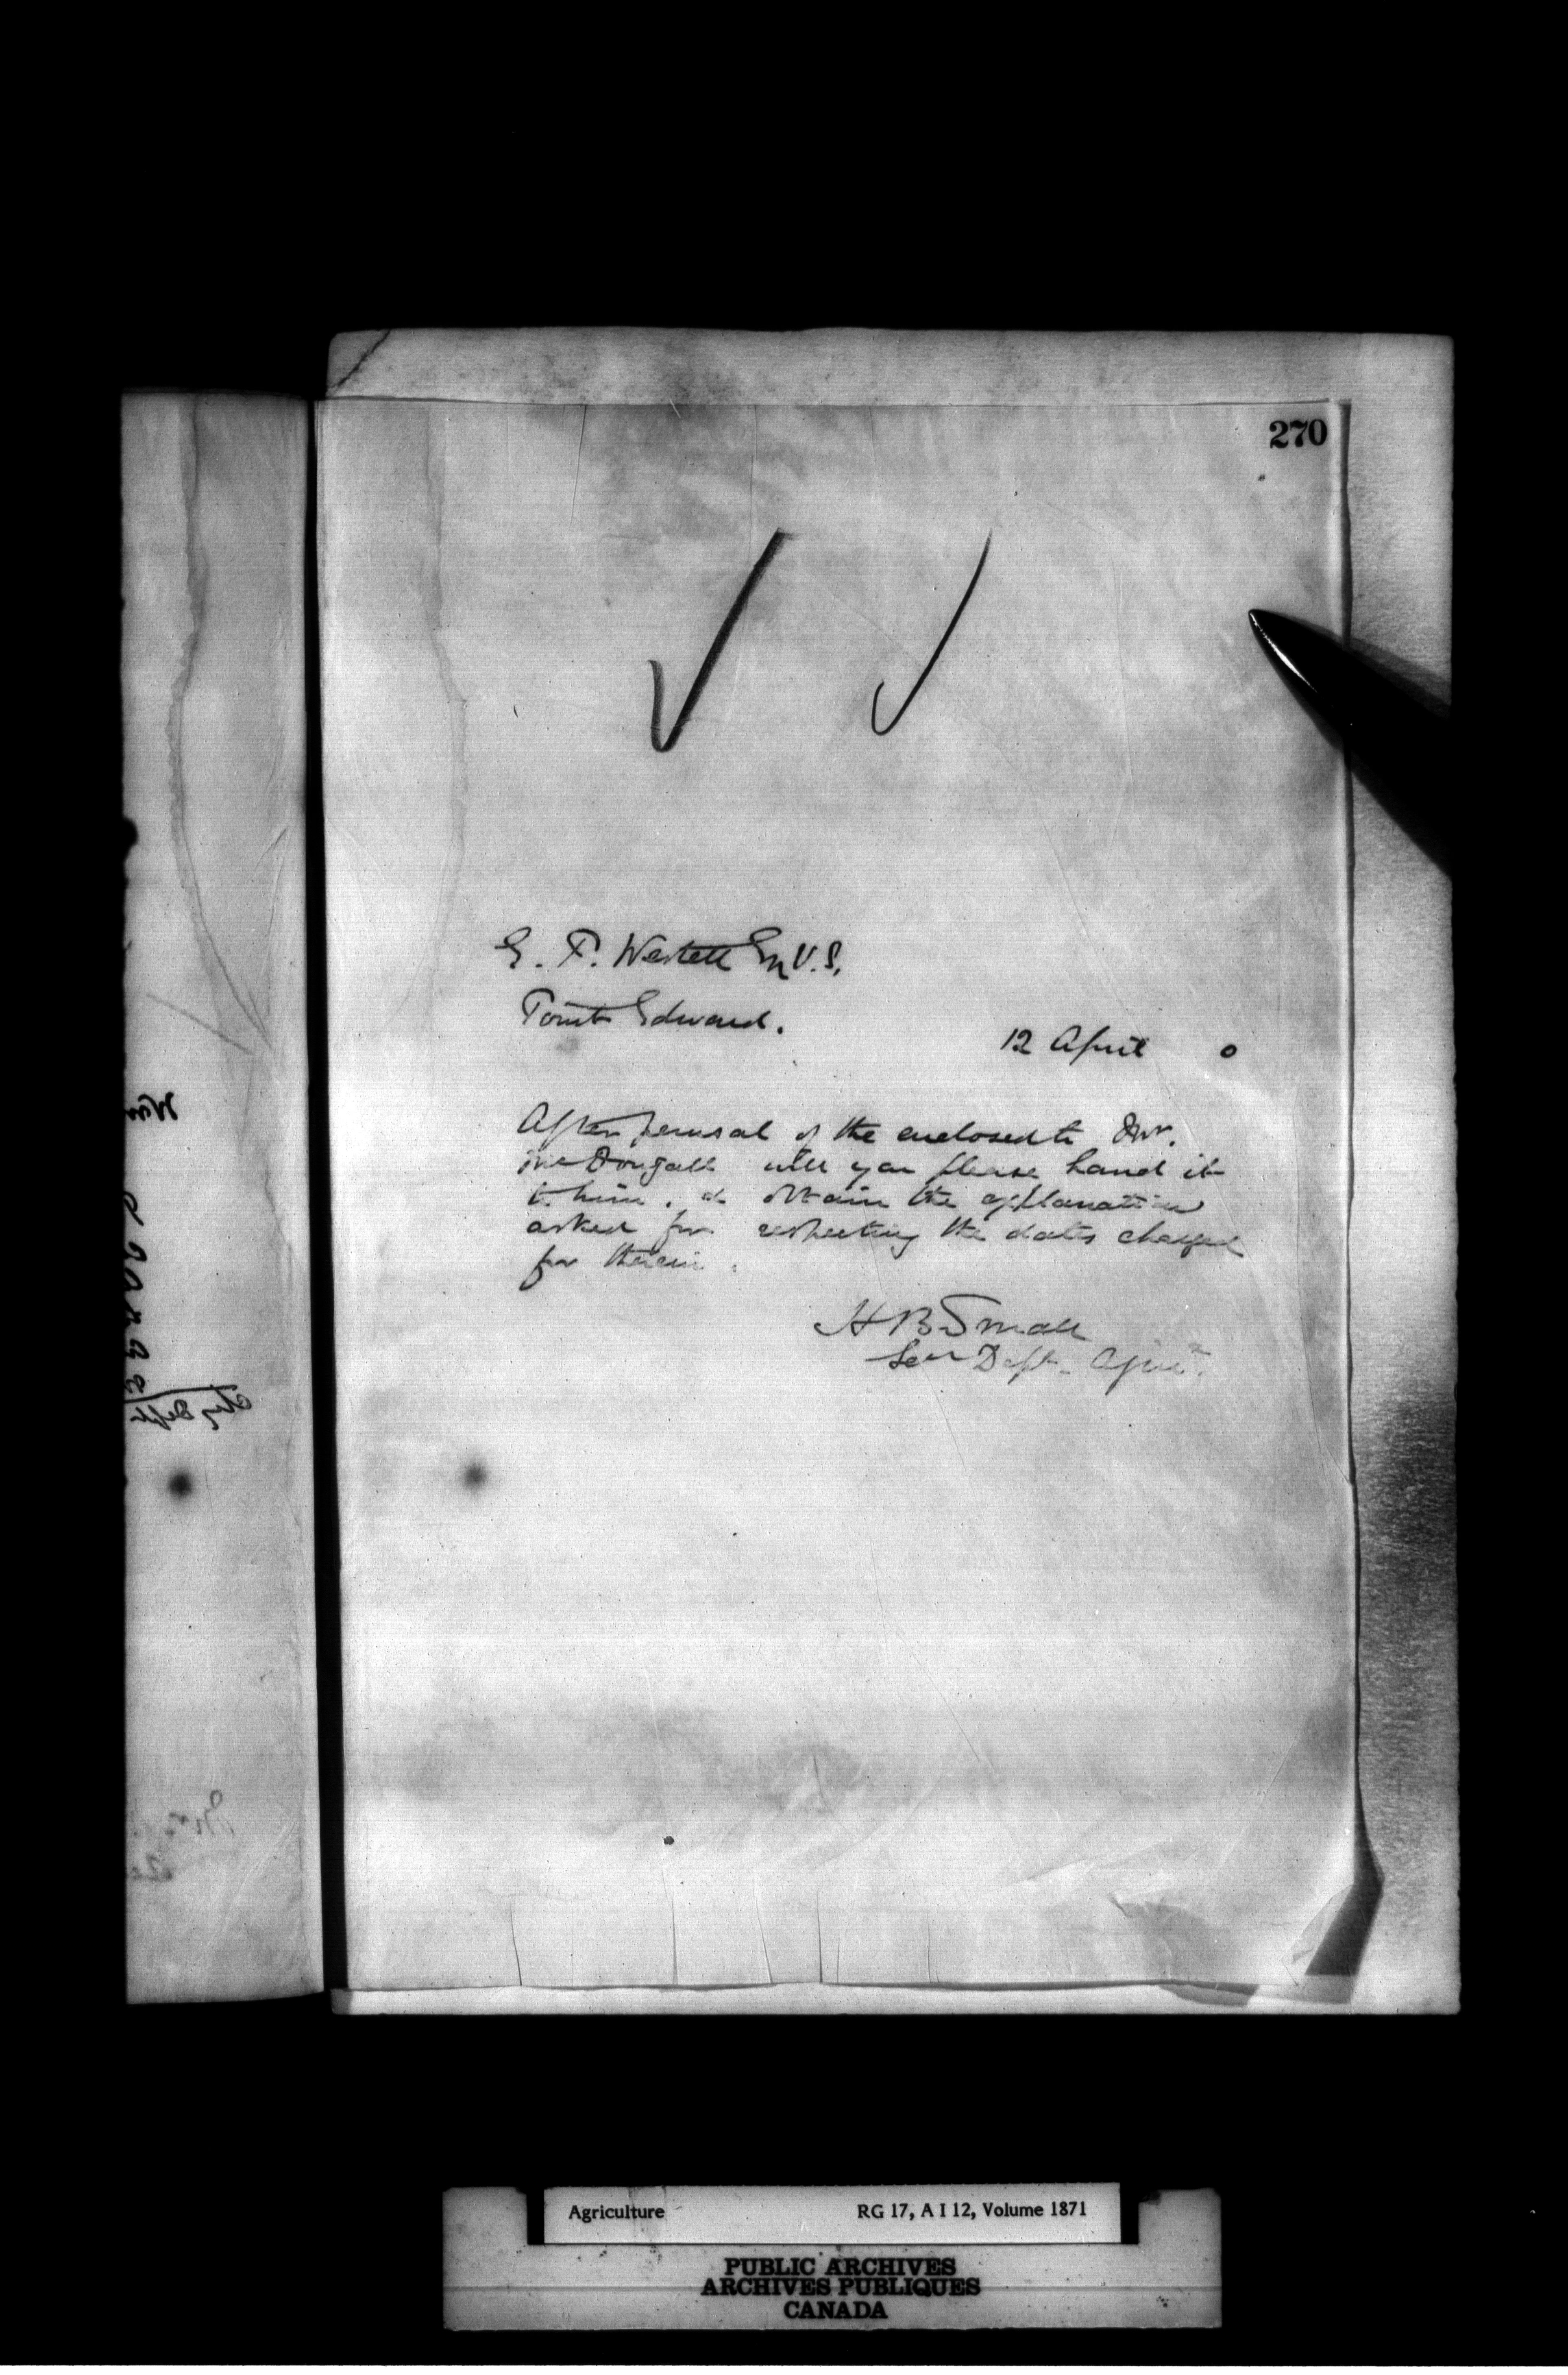 270
G. F. Westell Esq V.S.
Point Edward.
12 April 0
After perusal of the enclosed to Mr.
McDougall will you please hand it
to him, & obtain the explanation
asked for respecting the dates charged
for therein.
H B Small
Secy Dept. Agric.
Agriculture RG 17, A I 12, Volume 1871
PUBLIC ARCHIVES
ARCHIVES PUBLIQUES
CANADA